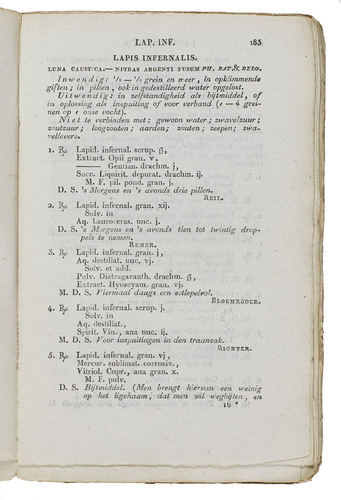 LAP. INF. 185
LAPIS INFERNALIS.
LUNA CAUSTICA. — NITRAS ARGENTI FUSUM PH. BAT. & BELG.
Inwendig: 1/8 — 1/2 grein en meer, in opklimmende
giften; in pillen, ook in gedestilleerd water opgelost.
Uitwendig: in zelfstandigheid als bijtmiddel, of
in oplossing als inspuiting of voor verband (1 — 4 grei-
nen op 1 once vocht).
Niet te verbinden met: gewoon water; zwavelzuur;
zoutzuur; loogzouten; aarden; zouten; zeepen; zwa-
vellevers.
1. ℞ Lapid. infernal. scrup. ß,
Extract. Opii gran. v,
—— Gentian. drachm. j,
Succ. Liquirit. depurat. drachm. ij.
M. F. pil. pond. gran. j.
D. S. 's Morgens en 's avonds drie pillen.
REIL.
2. ℞ Lapid. infernal. gran. xij.
Solv. in
Aq. Lauroceras. unc. j.
D. S. 's Morgens en 's avonds tien tot twintig drop-
pels te nemen.
REMER.
3. ℞ Lapid. infernal. gran. j,
Aq. destillat. unc. vj.
Solv. et add.
Pulv. Diatragacanth. drachm. ß,
Extract. Hyoscyam. gran. vj.
M. D. S. Viermaal daags een eetlepelvol.
BLOEMRÖDER.
4. ℞ Lapid. infernal. scrup. j.
Solv. in
Aq. destillat.,
Spirit. Vin., ana unc. ij.
M. D. S. Voor inspuitingen in den traanzak.
RICHTER.
5. ℞ Lapid. infernal. gran. vj,
Mercur. sublimat. corrosiv.,
Vitriol. Cupr., ana gran. x.
M. F. pulv.
D. S. Bijtmiddel. (Men brengt hiervan een weinig
op het ligchaam, dat men wil wegbijten, en
16 *